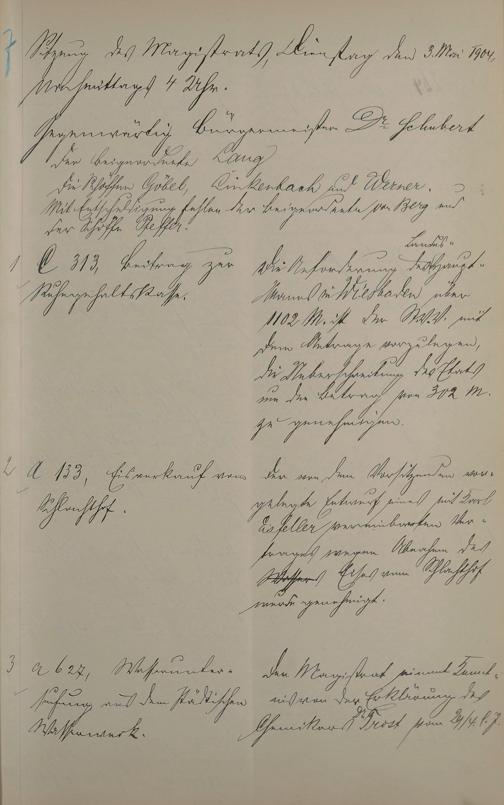 7
Sitzung des Magistrats, Dienstag den 3. Mai 1904,
Nachmittags 4 Uhr.
Gegenwärtig Bürgermeister Dr. Schubert
der Beigeordnete Lang
die Schöffen Göbel, Dinkenbach und Werner.
Mit Entschuldigung fehlen der Beigeordnete von Berg und
der Schöffe Pfeffer.
1 C 313, Beitrag zur
Ruhegehaltskasse.
Die Anforderung des Landes-
haupt-
manns in Wiesbaden über
1102 M. ist der St.V.V. mit
dem Antrage vorzulegen,
die Ueberschreitung des Etats
um den Betrag von 302 M.
zu genehmigen.
2 A 133, Eisverkauf vom
Schlachthof.
Der von dem Vorsitzenden vor-
gelegte Entwurf eines mit Karl
vereinbarten Ver-
trages wegen Abnahme des
Wassers Eises vom Schlachthof
wurde genehmigt.
3 A 627, Wasserunter-
suchung aus dem städtischen
Wasserwerk.
Der Magistrat nimmt Kennt-
nis von der Erklärung des
Chemikers Dr. Trost vom 24/4. l. J.